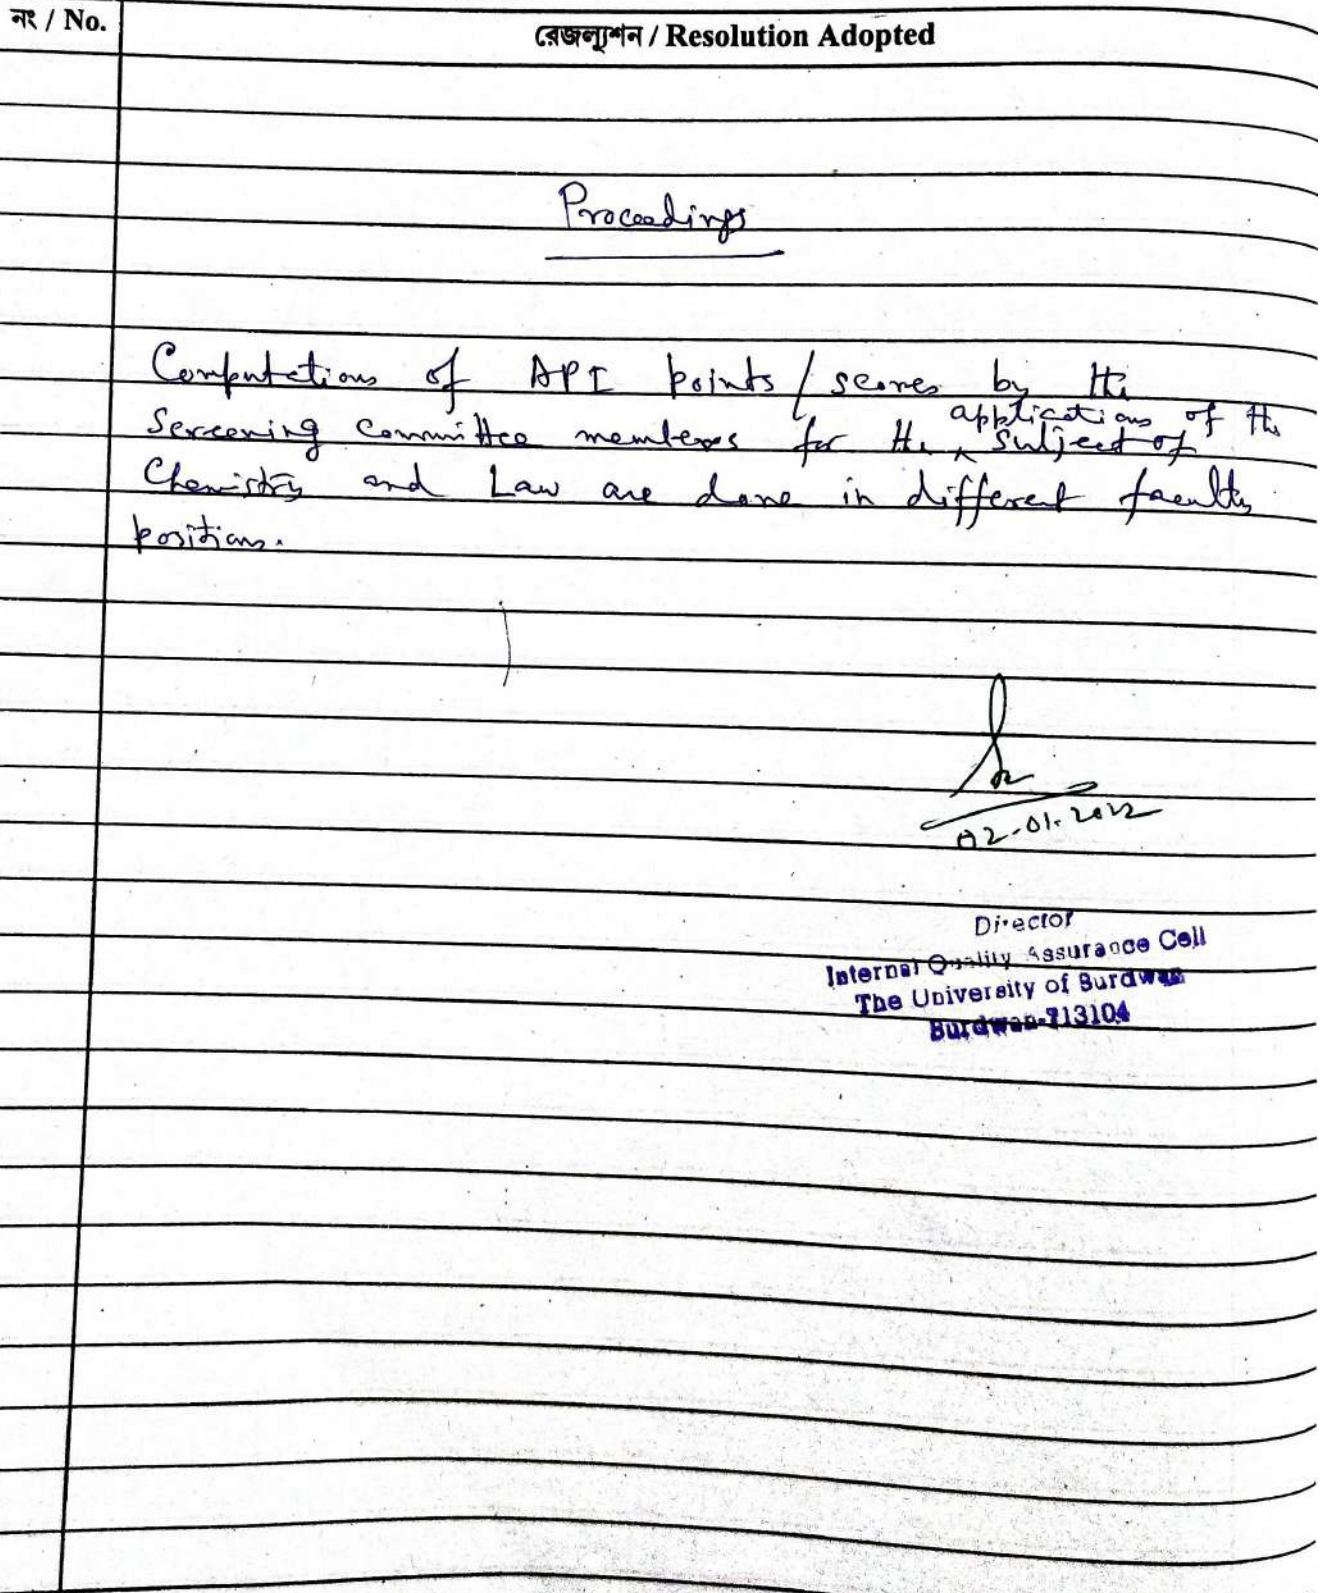 নং / No.
রেজল্যুশন / Resolution Adopted
Proceedings
Computations of API points / scores by the
Screening Committee members for the ^ applications of the subject of
Chemistry and Law are done in different faculty
positions.
02-01-2022
Director
Internal Quality Assurance Cell
The University of Burdwan
Burdwan-713104